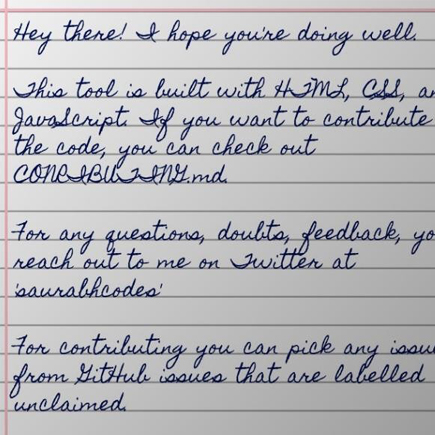 Hey there! I hope you're doing well.
This tool is built with HTML, CSS, an
JavaScript. If you want to contribute
the code, you can check out
CONRIBUTING.md.
For any questions, doubts, feedback, yo
reach out to me on Twitter at
'saurabhcodes'
For contributing you can pick any issu
from GitHub issues that are labelled
unclaimed.